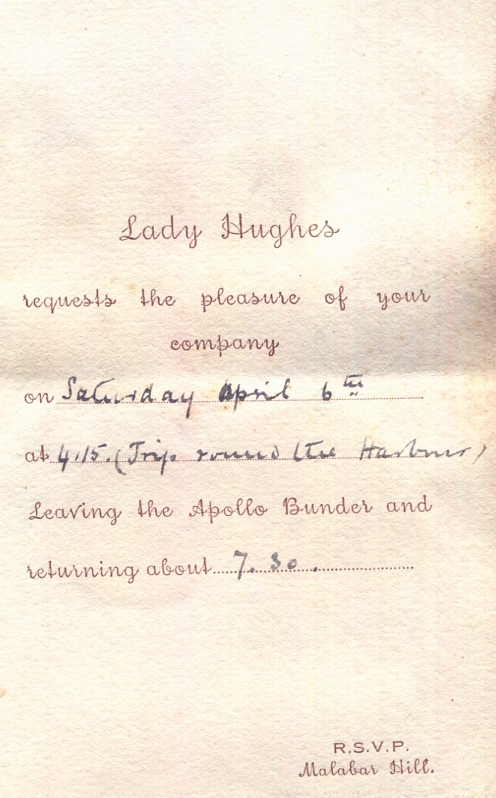 Lady Hughes
requests the pleasure of your
company
on Saturday April 6th
at 4.15. (Trip round the Harbour)
Leaving the Apollo Bunder and
returning about 7.30.
R.S.V.P.
Malabar Hill.